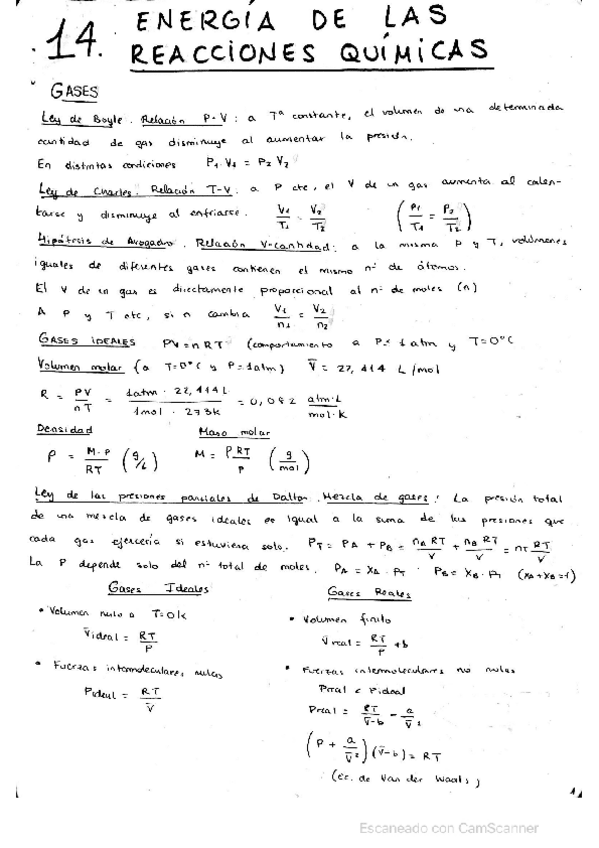 14. ENERGÍA DE LAS
REACCIONES QUÍMICAS
GASES
Ley de Boyle. Relación P-V: a Tª constante, el volumen de una determinada
cantidad de gas disminuye al aumentar la presión.
En distintas condiciones P₁·V₁ = P₂V₂
Ley de Charles. Relación T-V. a P cte, el V de un gas aumenta al calen-
tarse y disminuye al enfriarse. V₁/T₁ = V₂/T₂ (P₁/T₁ = P₂/T₂)
Hipótesis de Avogadro. Relación V-cantidad: a la misma P y T, volúmenes
iguales de diferentes gases contienen el mismo nº de átomos.
El V de un gas es directamente proporcional al nº de moles (n)
A P y T ctc, si n cambia V₁/n₁ = V₂/n₂
GASES IDEALES PV=nRT (comportamiento a P≤1atm y T=0°C
Volumen molar (a T=0°C y P=1atm) V̄ = 22,414 L/mol
R = PV/nT = 1atm · 22,414L / 1mol · 273k = 0,082 atm·L/mol·K
Densidad Masa molar
ρ = M·P/RT (g/L) M = ρRT/P (g/mol)
Ley de las presiones parciales de Dalton. Mezcla de gases: La presión total
de una mezcla de gases ideales es igual a la suma de las presiones que
cada gas ejercería si estuviera solo. P_T = P_A + P_B = n_A RT/V + n_B RT/V = n_T RT/V
La P depende solo del nº total de moles. P_A = X_A · P_T P_B = X_B · P_T (X_A+X_B=1)
Gases Ideales Gases Reales
• Volumen nulo a T=0k • Volumen finito
V̄ideal = RT/P V̄real = RT/P + b
• Fuerzas intermoleculares nulas • Fuerzas intermoleculares no nulas
Preal < Pideal
Pideal = RT/V̄ Preal = RT/V̄-b - a/V̄²
(P + a/V̄²)(V̄-b) = RT
(ec. de Van der Waals)
Escaneado con CamScanner